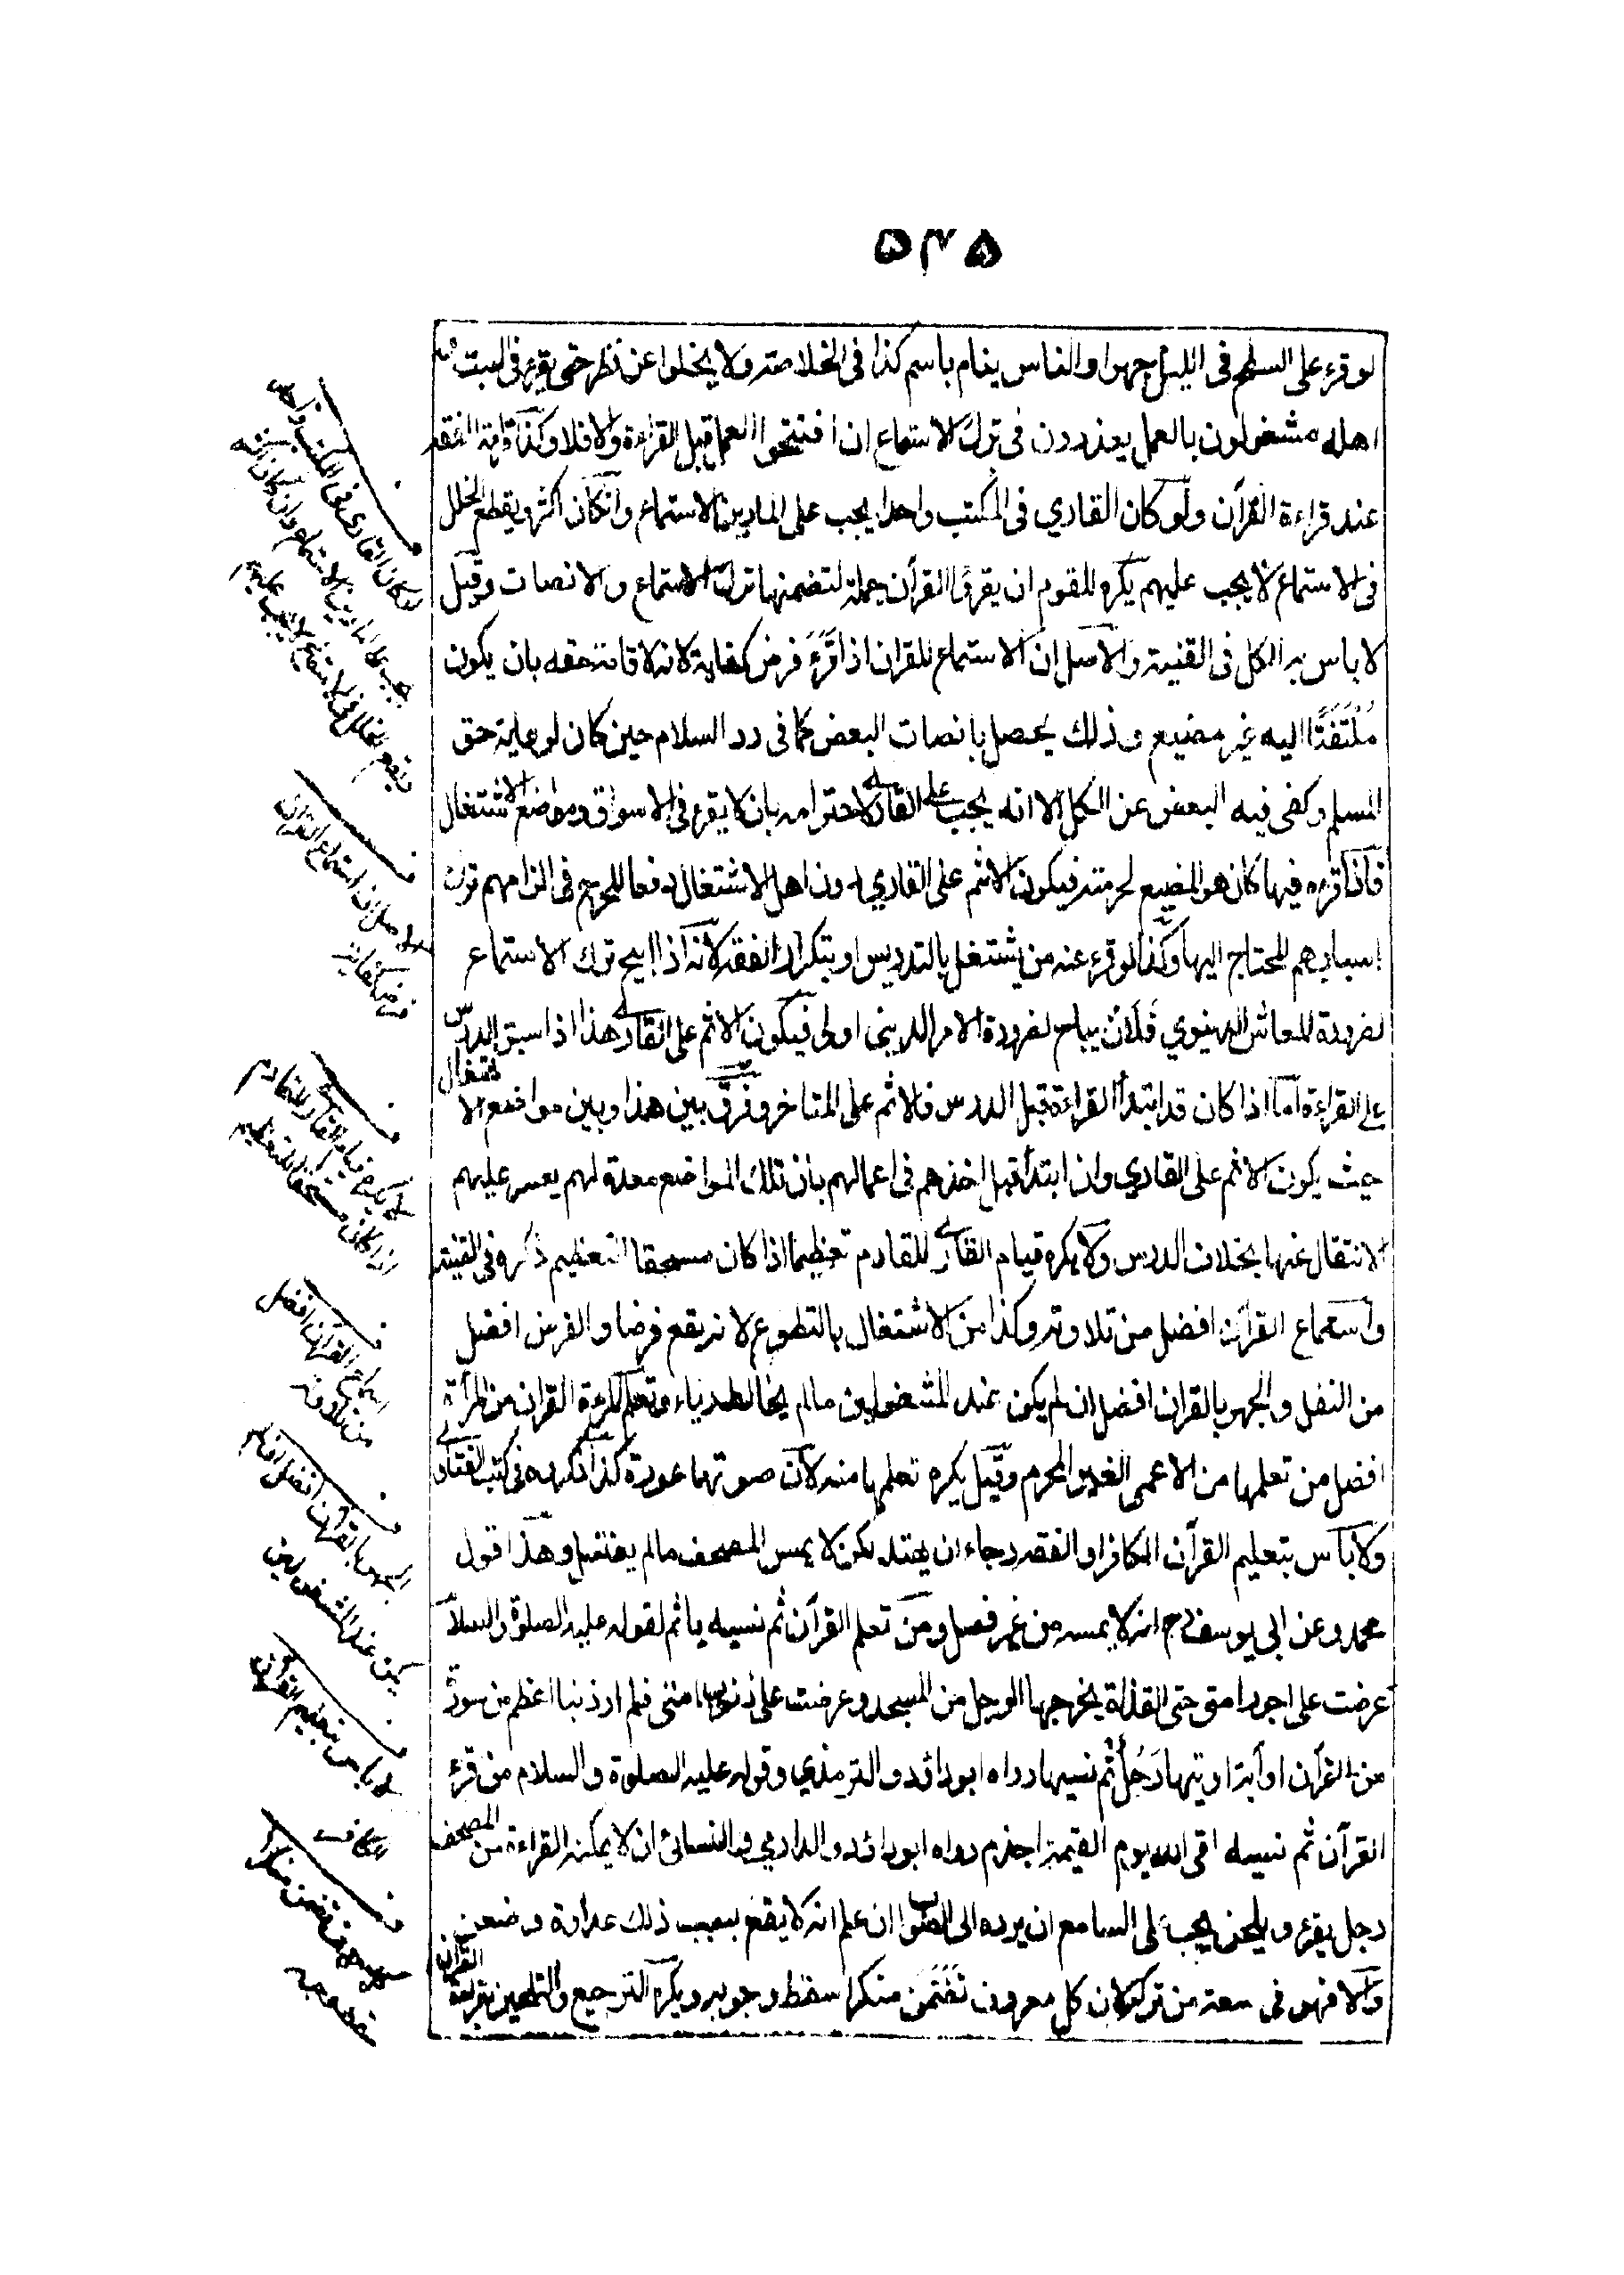 ۵۳۵
لو قرء على السطح فى الليل جهرا والناس ينام ياثم كذا فى الخلاصة ولا يخلوا عن نظر حتى يقرء فى البيت و
اهله مشغولون بالعمل يعذرون فى ترك الاستماع ان افتتحوا العمل قبل القراءة والا فلا وكذا قراءة الفقه
عند قراءة القرآن ولو كان القاري فى المكتب واحدا يجب على المارين الاستماع وانكان اكثر ويقطع الخلل
فى الاستماع لا يجب عليهم يكره للقوم ان يقرؤا القرآن جملة لتضمنها ترك الاستماع والانصات وقيل
لا باس به الكل فى القنية والاصل ان الاستماع للقران اذا قرء فرض كفاية لانه لاقامة حقه بان يكون
ملتفتا اليه غير مضيع وذلك يحصل بانصات البعض كما فى رد السلام حين كان لرعاية حق
المسلم وكفى فيه البعض عن الكل الا انه يجب على القارى احترامه بان لا يقرء فى الاسواق ومواضع الاشتغال
فاذا قرءه فيها كان هو المضيع لحرمته فيكون الاثم على القاري دون اهل الاشتغال دفعا للحرج فى الزامهم ترك
اسبابهم المحتاج اليها وكذا لو قرء عنده من يشتغل بالتدريس او بتكرار الفقه لانه اذا ابيح ترك الاستماع
لضرورة المعاش الدنيوي فلان يباح لضرورة الامر الديني اولى فيكون الاثم على القارى هذا اذا سبق الدرس
على القراءة اما اذا كان قد ابتدأ القراءة قبل الدرس فالاثم على المتاخر وفرق بين هذا وبين مواضع الاشتغال
حيث يكون الاثم على القاري وان ابتدأ قبل اخذهم فى اعمالهم بان تلك المواضع معدة لهم يعسر عليهم
الانتقال عنها بخلاف الدرس ولا يكره قيام القارى للقادم تعظيما اذا كان مستحقا التعظيم ذكره فى القنية
واستماع القرآن افضل من تلاوته وكذا من الاشتغال بالتطوع لانه يقع فرضا والفرض افضل
من النفل والجهر بالقران افضل ان لم يكن عند المشغولين مالم يخالطه رياء وتعلم المرءة القران من المرأة
افضل من تعلمها من الاعمى الغير المحرم وقيل يكره تعلمها منه لان صوتها عورة كذا ذكره فى كتب الفتاوى
ولا باس بتعليم القرآن الكافر او الفقه رجاء ان يهتد لكن لا يمس المصحف مالم يغتسل وهذا قول
محمد وعن ابى يوسف رح انه لا يمسه من غير فصل ومن تعلم القرآن ثم نسيه ياثم لقوله عليه الصلوة والسلام
عرضت على اجور امتى حتى القذاة يخرجها الرجل من المسجد وعرضت على ذنوب امتى فلم ار ذنبا اعظم من سورة
من القرآن او آية اوتيها رجل ثم نسيها رواه ابو داؤد والترمذي وقوله عليه الصلوة والسلام من قرء
القرآن ثم نسيه لقى الله يوم القيمة اجذم رواه ابو داؤد والدارمي والنسائى ان لا يمكنه القراءة من المصحف
رجل يقرء ويلحن يجب على السامع ان يرده الى الصواب ان علم انه لا يقع بسبب ذلك عداوة وضغن
والا فهو فى سعة من تركه لان كل معروف تضمن منكرا سقط وجوبه ويكره الترجيع والتلحين بقراءة القرآن
لو كان القاري فى المكتب واحدا
يجب على المارين الاستماع وان كان اكثر
ويقع الخلل فى الاستماع لا يجب عليهم
الاصل ان استماع القران
فرض كفاية
لا يكره قيام القارى للقادم
اذا كان مستحقا للتعظيم
استماع القرآن افضل
من تلاوته
الجهر بالقرآن افضل ان لم
يكن عند المشغولين
لا باس بتعليم القرآن
الكافر
كل معروف تضمن منكرا
سقط وجوبه